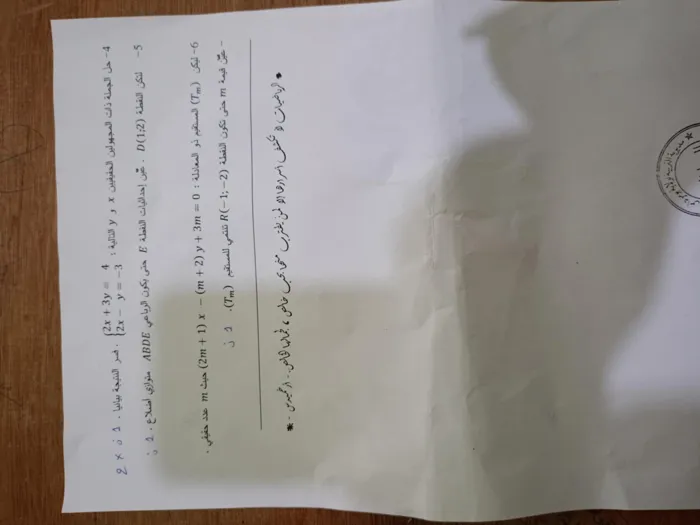 4- حل الجملة ذات المجهولين الحقيقيين x و y التالية : {2x + 3y = 4 2x − y = −3 . فسر النتيجة بيانيا . 2 × ن 1
5- لتكن النقطة D(1;2) . عيّن إحداثيات النقطة E حتى يكون الرباعي ABDE متوازي أضلاع . 1 ن
6- ليكن (Tm) المستقيم ذو المعادلة : (2m + 1) x − (m + 2) y + 3m = 0 حيث m عدد حقيقي .
- عيّن قيمة m حتى تكون النقطة R(−1; −2) تنتمي للمستقيم (Tm). 1 ن
* الرياضيات لا تكشف أسرارها إلا لمن يقترب منها بحب خالص ، لجمالها الخاص . أرخميدس . *